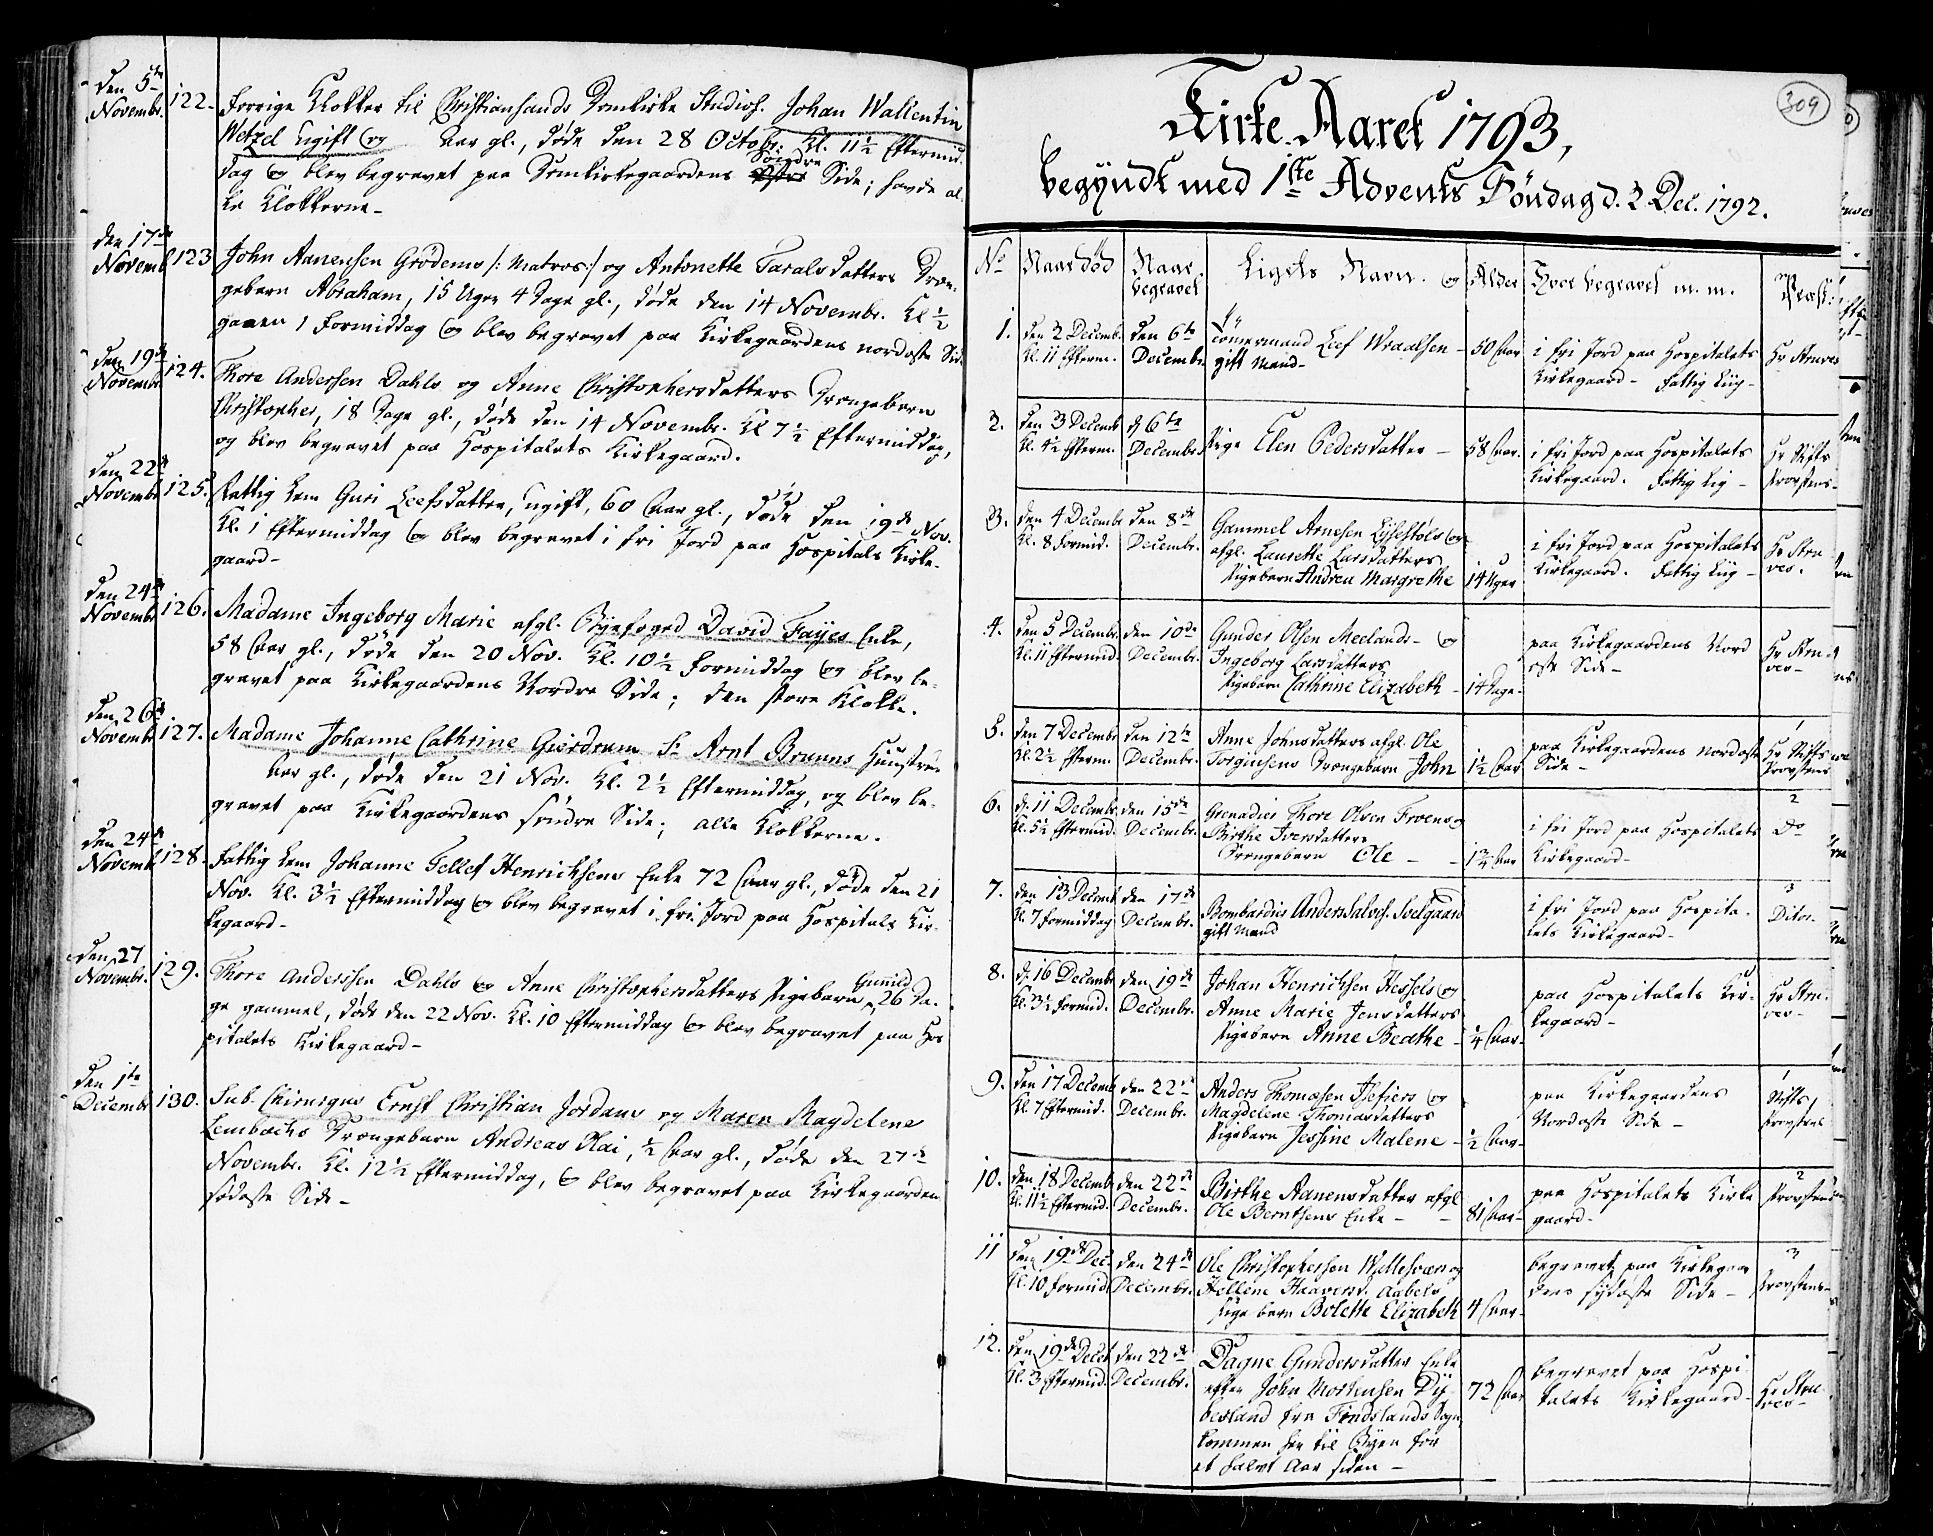 Den 5te
Novembr. 122. Forrige Klokker til Christiansands Domkirke Studios. Johan Wallentin
Wetzel Ugift og Aar gl., døde den 28 Octobr. Kl. 11½ Eftermid-
dag og blev begravet paa Domkirkegaardens Søndre Side; havde al-
le Klokkerne-
Den 17de
Novemb. 123 John Aanensen Grødems /: Matros :/ og Antonette Taralsdatters Dren-
gebarn Abraham, 15 Uger 4 Dage gl., døde den 14 Novembr. Kl ½
gaaen 1 Formiddag og blev begravet paa Kirkegaardens nordoste Side
Den 19de
Novembr. 124. Thore Andersen Dahls og Anne Christophersdatters Drengebarn
Christopher, 18 Dage gl., døde den 14 Novembr. Kl 7½ Eftermiddag,
og blev begravet paa Hospitalets Kirkegaard.
Den 22de
Novembr 125. Fattig Lem Guri Leefsdatter, ugift, 60 Aar gl., døde den 19de Nov.
Kl. 1 Eftermiddag og blev begravet i fri Jord paa Hospitals Kirke-
gaard-
Den 24de
Novembr 126. Madame Ingeborg Marie afgl. Byefoged David Fayes Enke,
58 Aar gl., døde den 20 Nov. Kl. 10½ Formiddag og blev be-
gravet paa Kirkegaardens Nordre Side; den store Klokke.
Den 26de
Novembr 127. Madame Johanne Cathrine Gierdrum Sr Arnt Bruuns Huustrue
Aar gl., døde den 21 Nov. Kl. 2½ Eftermiddag, og blev be-
gravet paa Kirkegaardens søndre Side; alle Klokkerne.
Den 24de
Novembr 128. Fattig Lem Johanne Tellef Henrichsens Enke 72 Aar gl., døde den 21
Nov. Kl. 3½ Eftermiddag og blev begravet i fri Jord paa Hospitals Kir-
kegaard-
Den 27
Novembr. 129. Thore Anderssen Dahls og Anne Christophersdatters Pigebarn Gunnild, 26 Da-
ge gammel, døde den 22 Nov. Kl. 10 Eftermiddag og blev begravet paa Hos
pitalets Kirkegaard-
Den 1te
Decembr 130. Sub. Chirurgus Ernst Christian Jordans og Maren Magdelene
Lembachs Drengebarn Andreas Olai, ½ Aar gl., døde den 27de
Novembr. Kl. 12½ Eftermiddag, og blev begravet paa Kirkegaarden
sødoste Side-
309
Kirke-Aaret 1793,
begyndt med 1ste Advents Søndag d. 2 Dec. 1792.
No Naar død Naar begravet Ligets Navn og Alder Hvor begravet m. m. Præst:
1. den 2 Decemb. den 6te Tømmermand Leef Wraalsen - 50 Aar i fri Jord paa Hospitalets Hr Struves
Kl. 11 Efterm. Decembr. gift Mand- Kirkegaard- Fattig Liig-
2. den 3 Decemb d. 6te Pige Elen Pedersdatter - 58 Aar. i fri Jord paa Hospitalets Hr Stifts
Kl. 4½ Efterm. Decembr. Kirkegaard. Fattig Lig- Provstens-
3. den 4 Decembr den 8de Gammel Arnesen Lysestøls og i fri Jord paa Hospitalets Hr Stru-
Kl. 8 Formid. Decembr. afgl. Laurette Larsdatters Kirkegaard. Fattig Liig- ves.
Pigebarn Andrea Margrethe 14 Uger
4. den 5 Decembr. den 10de Gunder Olsen Meelands- og paa Kirkegaardens Nord Hr Stru-
Kl. 11 Eftermid. Decembr. Ingeborg Larsdatters oste Side- ves-
Pigebarn Cathrine Elizabeth - 14 Dage-
5. den 7 Decembr den 12te Anne Johnsdatters afgl. Ole paa Kirkegaardens nordoste 1 Hr Stifts
Kl. 2½ Efterm. Decembr. Torgiusens Drengebarn John 1½ Aar Side- Provstens
6. d. 11 Decembr. den 15de Grenadier Thore Olsen Froens og i fri Jord paa Hospitalets 2 Do
Kl. 5½ Eftermid. Decembr. Birthe Iversdatters Kirkegaard-
Drengebarn Ole - 1¾ Aar
7. den 13 Decemb den 17de Bombardier Anders Salvess. Svelgaard i fri Jord paa Hospita- 3
Kl. 7 Formiddag Decembr. gift Mand lets Kirkegaard- Ditos.
8. d. 16 Decembr den 19de Johan Henrichsen Hessels og paa Hospitalets Kir- Hr Stru-
Kl. 3½ Formid. Decembr. Anne Marie Jensdatters kegaard- ves-
Pigebarn Anne Beathe - ¼ Aar-
9. den 17 Decemb den 22de Anders Thomasen Isefiers og paa Kirkegaardens 1 Stifts
Kl. 7 Eftermid. Decembr. Magdelene Thomasdatters Nordoste Side- Provstens
Pigebarn Jessine Malene - ½ Aar-
10. den 18 Decemb den 22de Birthe Aanensdatter afgl paa Hospitalets Kirke 2
Kl. 11½ Eftermid. Decembr. Ole Berntsens Enke - 81 Aar- gaard- Provstens
11 den 19de Dec. den 24de Ole Christophersen Wallesværs og begravet paa Kirkegaar 3
Kl. 10 Formid Decembr. Hellene Haavorsd. Aabels dens sydoste Side- Provstens-
Pige barn Bolette Elizabeth 4 Aar-
12. den 19de Decet den 22de Dagne Gundersdatter Enke begravet paa Hospi-
Kl. 3 Eftermid. Decembr. efter John Mortensen Dy- 72 Aar talets Kirkegaard- Hr Stru-
besland fra Findslands Sogn ves-
kommen her til Byen for
et halvt Aar siden-